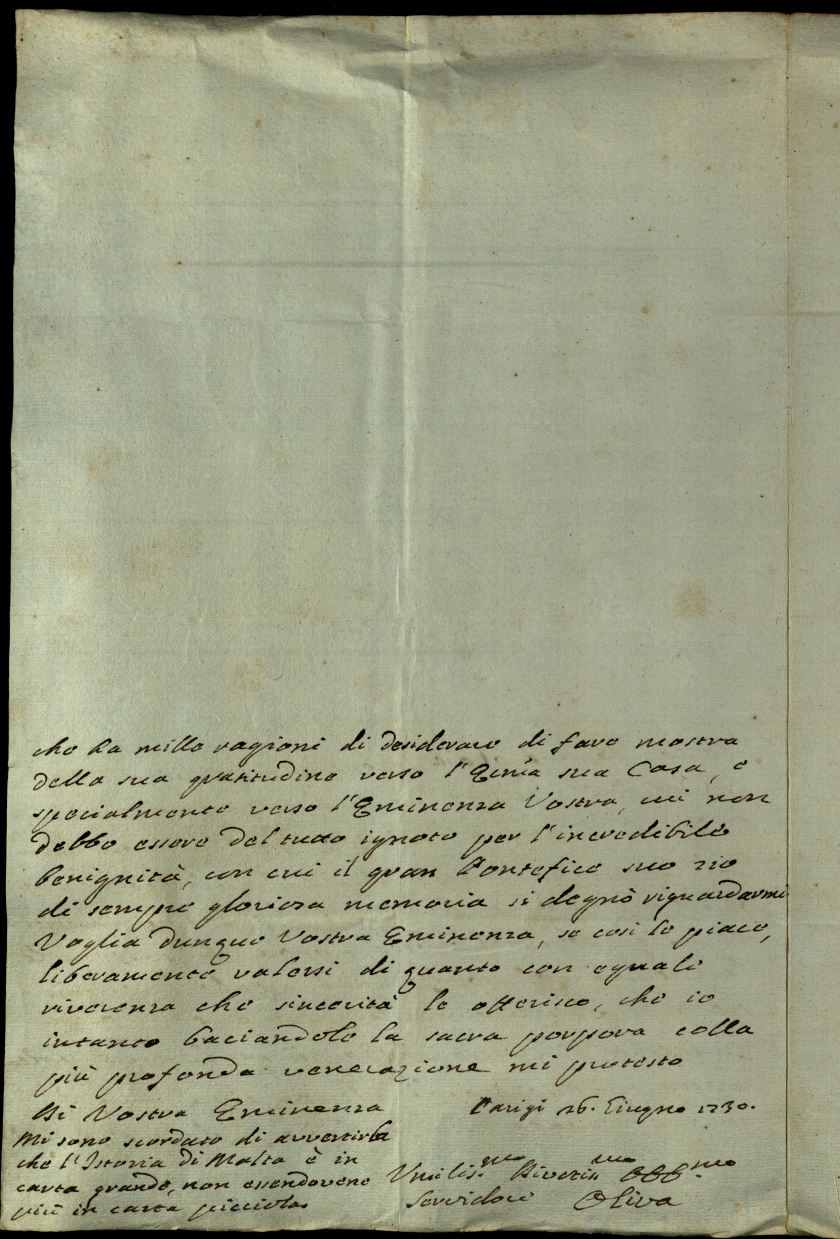 che ha mille ragioni di desiderare di fare mostra
della sua gratitudine verso l'Ecc̃ma sua Casa, e
specialmente verso l'Eminenza Vostra, cui non
debbo essere del tutto ignoto per l'incredibile
benignità, con cui il gran Pontefice suo zio
di sempre gloriosa memoria si degnò riguardarmi
Voglia dunque Vostra Eminenza, se così le piace,
liberamente valersi di quanto con eguale
riverenza che sincerità le offerisco, che io
intanto baciandole la sacra porpora colla
più profonda venerazione mi protesto
Di Vostra Eminenza
Parigi 26. Giugno 1730.
Mi sono scordato di avvertirla
che l'Istoria di Malta è in
carta grande, non essendovene
più in carta picciola.
Umilis.mo Diveris.mo Obb.mo
Servidore Oliva